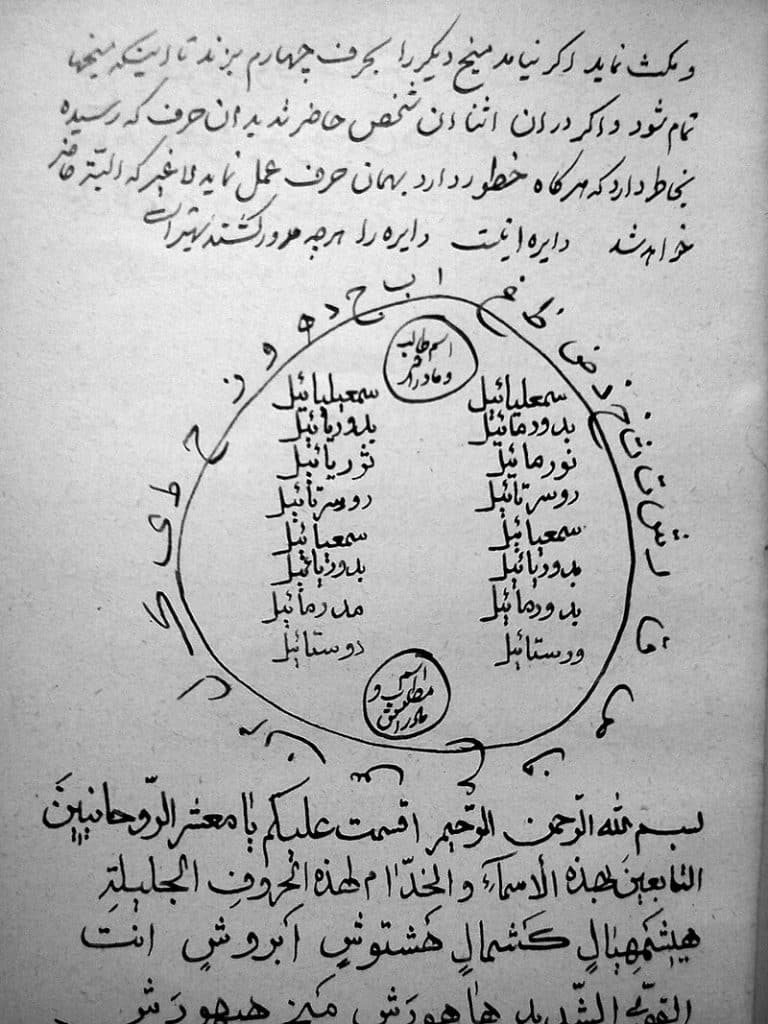 و مکث نماید اکر نیامد میخ دیکر را بحرف چهارم بزند تا اینکه میخها
تمام شود و اکر در ان اثنا ان شخص حاضر شد بد ان حرف که رسیده
بخاطر دارد که هر کاه خطور دارد بهمان حرف عمل نماید لا غیر که البته حاضر
خواهد شد دایره اینست دایره را هر چه مدور کشند بهتر است
ا ب ج د ه و ز ح ط ی ک ل م ن س ع ف ص ق ر ش ت ث خ ذ ض ظ غ
اسم طالب
و مادرش
سمعلیائیل سمعیلیائیل
بدودمائیل بدوریائیل
نورمائیل نوریائیل
دوسرتائیل دوسرتائیل
سمعیائیل سمعیائیل
بدوریائیل بدوریائیل
بدودمائیل مدرمائیل
ورستائیل دوستائیل
اسم
مطلوب و
مادرش
بسم الله الرّحمن الرّحیم اقسمت علیکم یا معشر الرّوحانیینَ
التابعینَ لهذه الاسمآءِ و الخدّام لهذه الحروفِ الجلیلةِ
هَیشَمهِیالٍ کَشمالٍ هَشتوشٍ اَبروشٍ انت
القویّ الشّدید هاهورَش